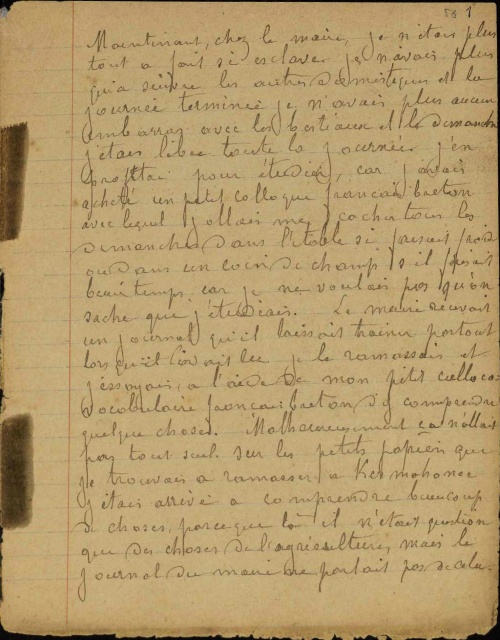 58 1
Maintenant, chez le maire, je n'étais plus
tout a fait si esclave je n'avais plus
qu'a suivre les autres domestiques et la
journée terminée je n'avais plus aucun
embarras avec les bestiaux et le dimanche
j'étais libre toute la journée j'en
profitai pour étudier, car j'avais
acheté un petit colloque français breton
avec lequel j'allais me cocher tous les
dimanches dans l'étable si faisait froid
ou dans un coin de champ s'il faisait
beau temps car je ne voulais pas qu'on
sache que j'étudiais. Le maire recevait
un journal qu'il laissait trainer partout
lorsqu'il l'avait lu je le ramassais et
j'essayais, a l'aide de mon petit colloco
vocabulaire français breton, d'y comprendre
quelque choses. Malheureusement ça n'allait
pas tout seul. Sur les petits papiers que
je trouvais a ramasser a Kermahonec
j'étais arrivé a comprendre beaucoup
de choses, parce que là il n'était question
que des choses de l'agriculture, mais le
journal du maire ne parlait pas de cela.